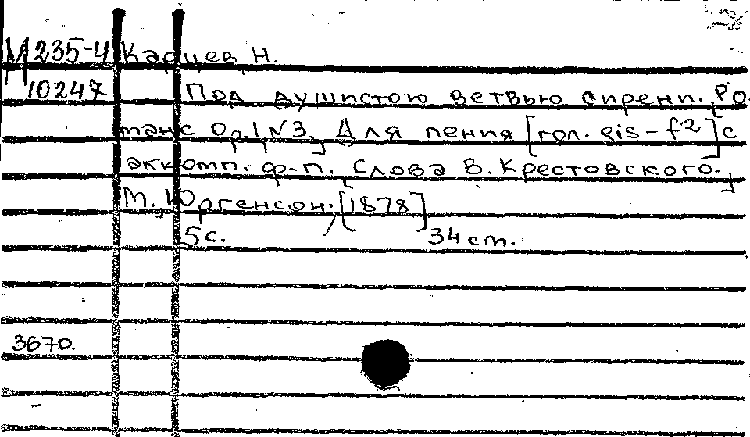 М 235-4 Карцев Н.
10247 Под душистою ветвью сирени. Ро-
манс Op.1 N3. Для пения [гол. gis-f2] с
аккомп. ф-п. [Слова В. Крестовского.]
М., Юргенсон. [1878]
5 с. 34 см.
3670.